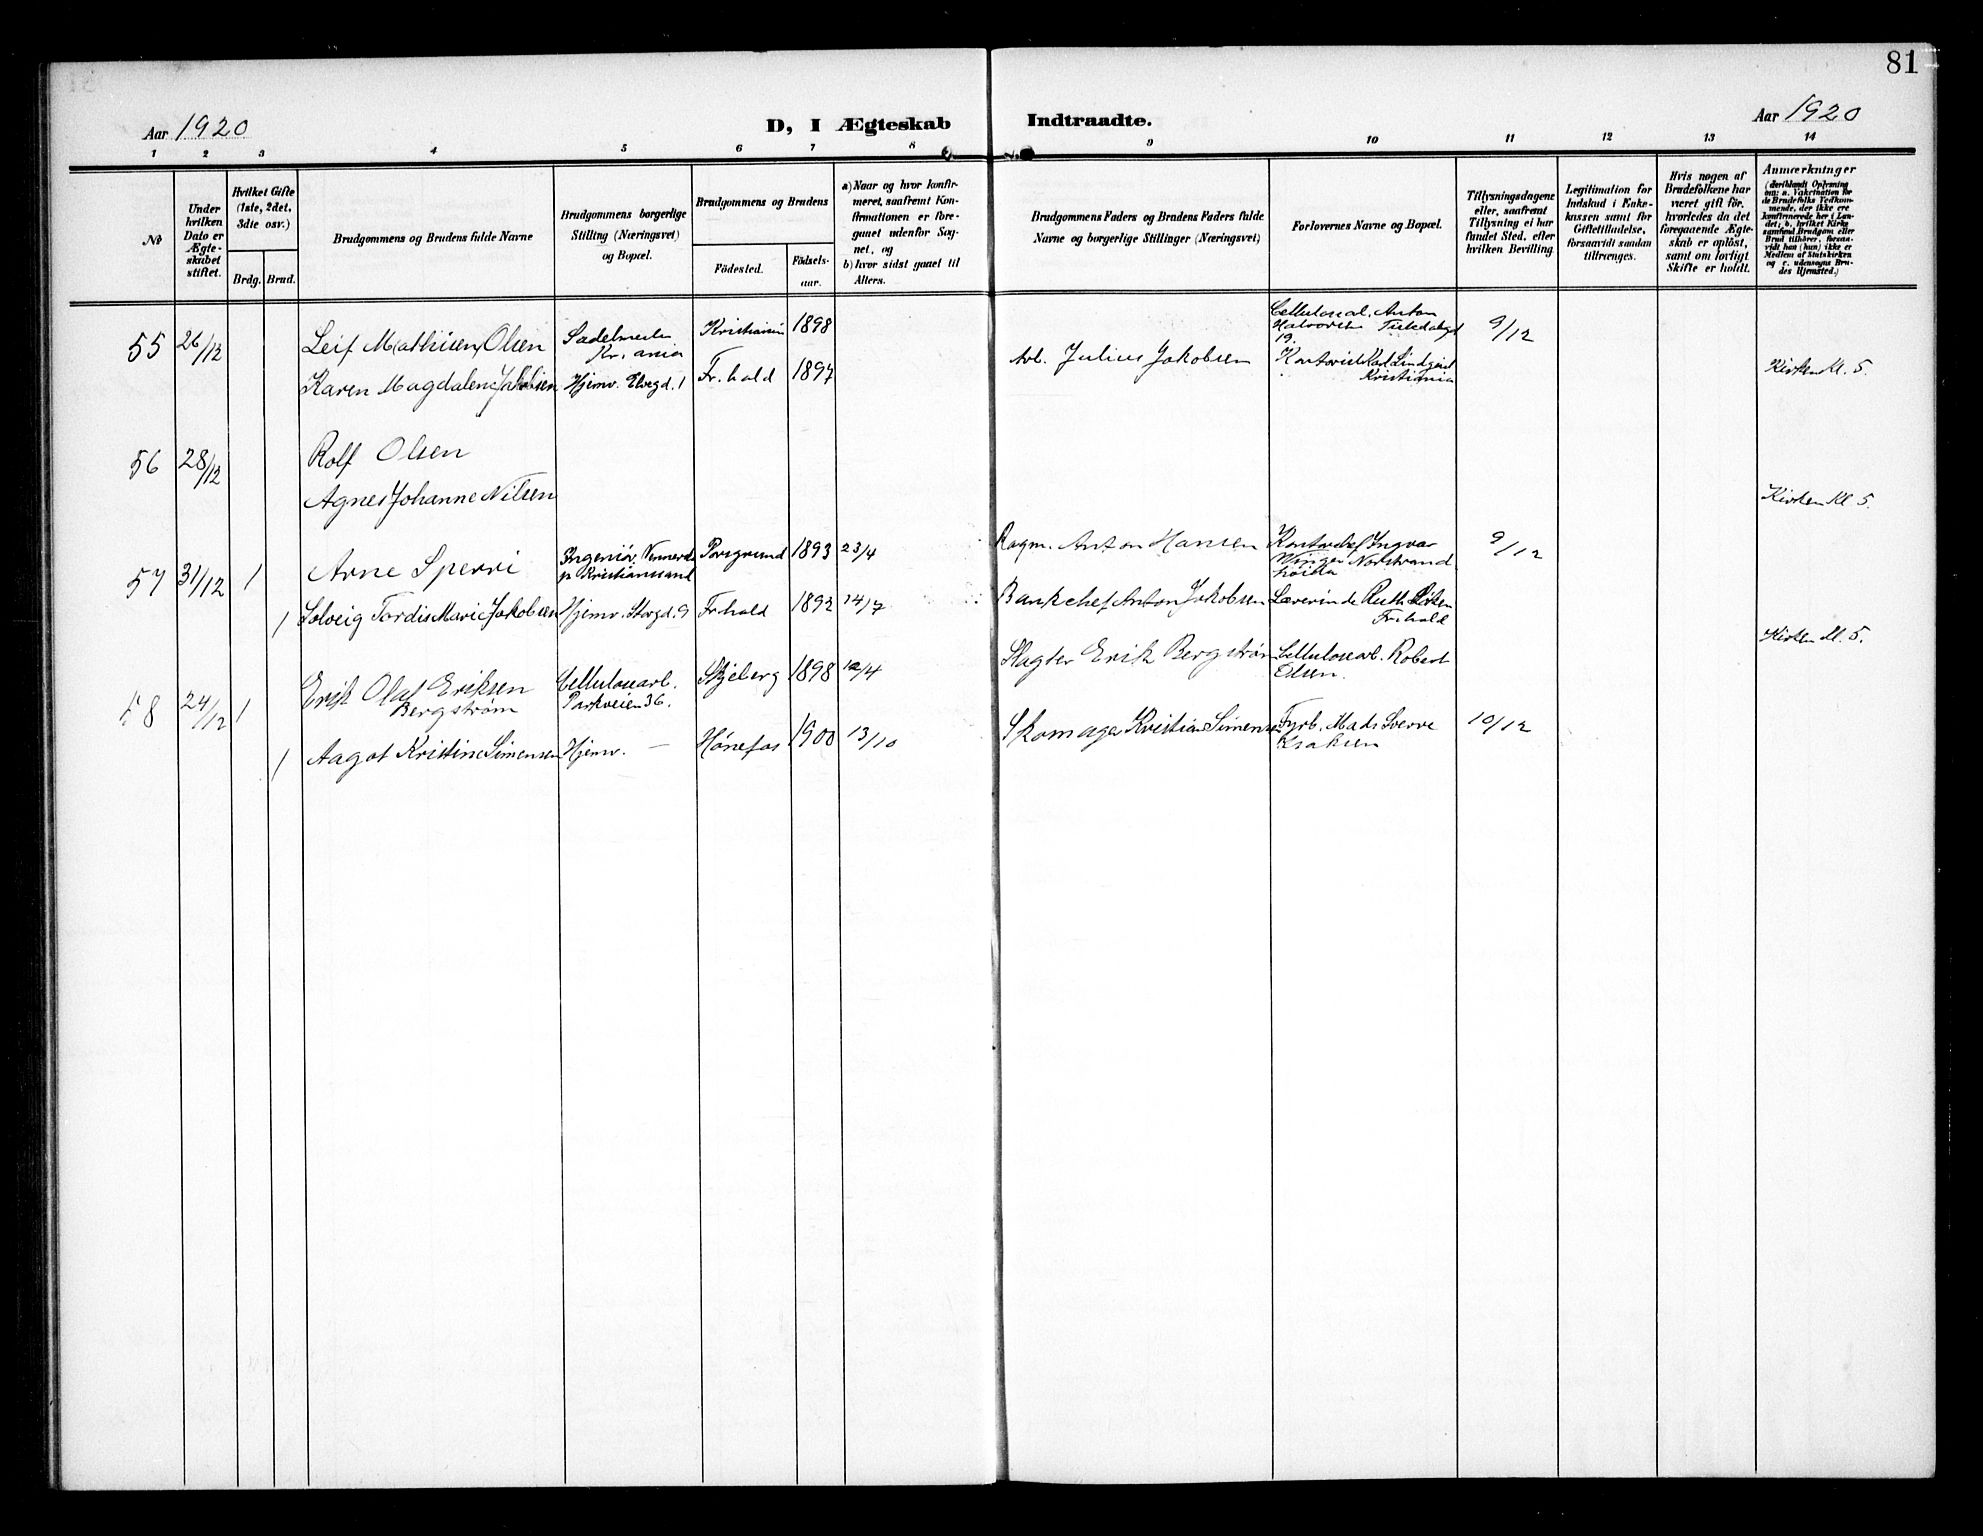 81
Aar 1920
D, I Ægteskab Indtraadte.
Aar 1920
1 2 3 4 5 6 7 8 9 10 11 12 13 14
№
Under hvilken Dato er Ægteskabet stiftet.
Hvilket Gifte (1ste, 2det, 3die osv.)
Brdg. Brud.
Brudgommens og Brudens fulde Navne
Brudgommens borgerlige Stilling (Næringsvei) og Bopæl.
Brudgommens og Brudens
Födested.
Födsels-aar.
a) Naar og hvor konfirmeret, saafremt Konfirmationen er foregaaet udenfor Sognet, og
b) hvor sidst gaaet til Alters.
Brudgommens Faders og Brudens Faders fulde Navne og borgerlige Stillinger (Næringsvei)
Forlovernes Navne og Bopæl.
Tillysningsdagene eller, saafremt Tillysning ei har fundet Sted, efter hvilken Bevilling
Legitimation for Indskud i Enkekassen samt for Giftetilladelse, forsaavidt saadan tiltrænges.
Hvis nogen af Brudefolkene har været gift för, hvorledes da det foregaaende Ægteskab er oplöst, samt om lovligt Skifte er holdt.
Anmærkninger
(deriblandt Oplysning om: a. Vakcinationen for de Brudefolks Vedkommende, der ikke ere konfirmerede her i Landet; b. hvilket Kirkesamfund Brudgom eller Brud tilhörer, forsaavidt han (hun) ikke er Medlem af Statskirken og c. udensogns Brudes Hjemsted.)
55 26/12 Leif Mathisen Olsen Sadelmaker Kr.ania Kristiania 1898 Cellulosearb. Anton Halvorsen Tistedalsgt 19. 9/12
Karen Magdalene Jakobsen Hjemv. Elvegd. 1 Fr.hald 1897 Arb. Julius Jakobsen Kontorist Karl Lindqvist Kristiania Kirken Kl. 5.
56 28/12 Rolf Olsen
Agnes Johanne Nilsen Kirken Kl 5.
57 31/12 1 Arne Sperri Ingeniör, Vennesla p. Kristianssand Porsgrund 1893 23/4 Ragm. Anton Hansen Kontorchef Ingvar Winger Nordstrand 9/12
1 Solveig Tordis Marie Jakobsen Hjemv. Storgd. 9 Fr.hald 1892 14/7 Bankchef Anton Jakobsen Lærerinde Ruth Fr.hald
Kirken Kl. 5.
58 24/12 1 Erik Olaf Eriksen Bergstrøm Cellulosearb. Parkveien 36. Skjeberg 1898 12/4 Slagter Erik Bergstrøm Cellulosearb. Robert
1 Aagot Kristine Simensen Hjemv. — Hönefos 1900 13/10 Skomager Kristian Simensen Fyrb. Mads Sverre 10/12